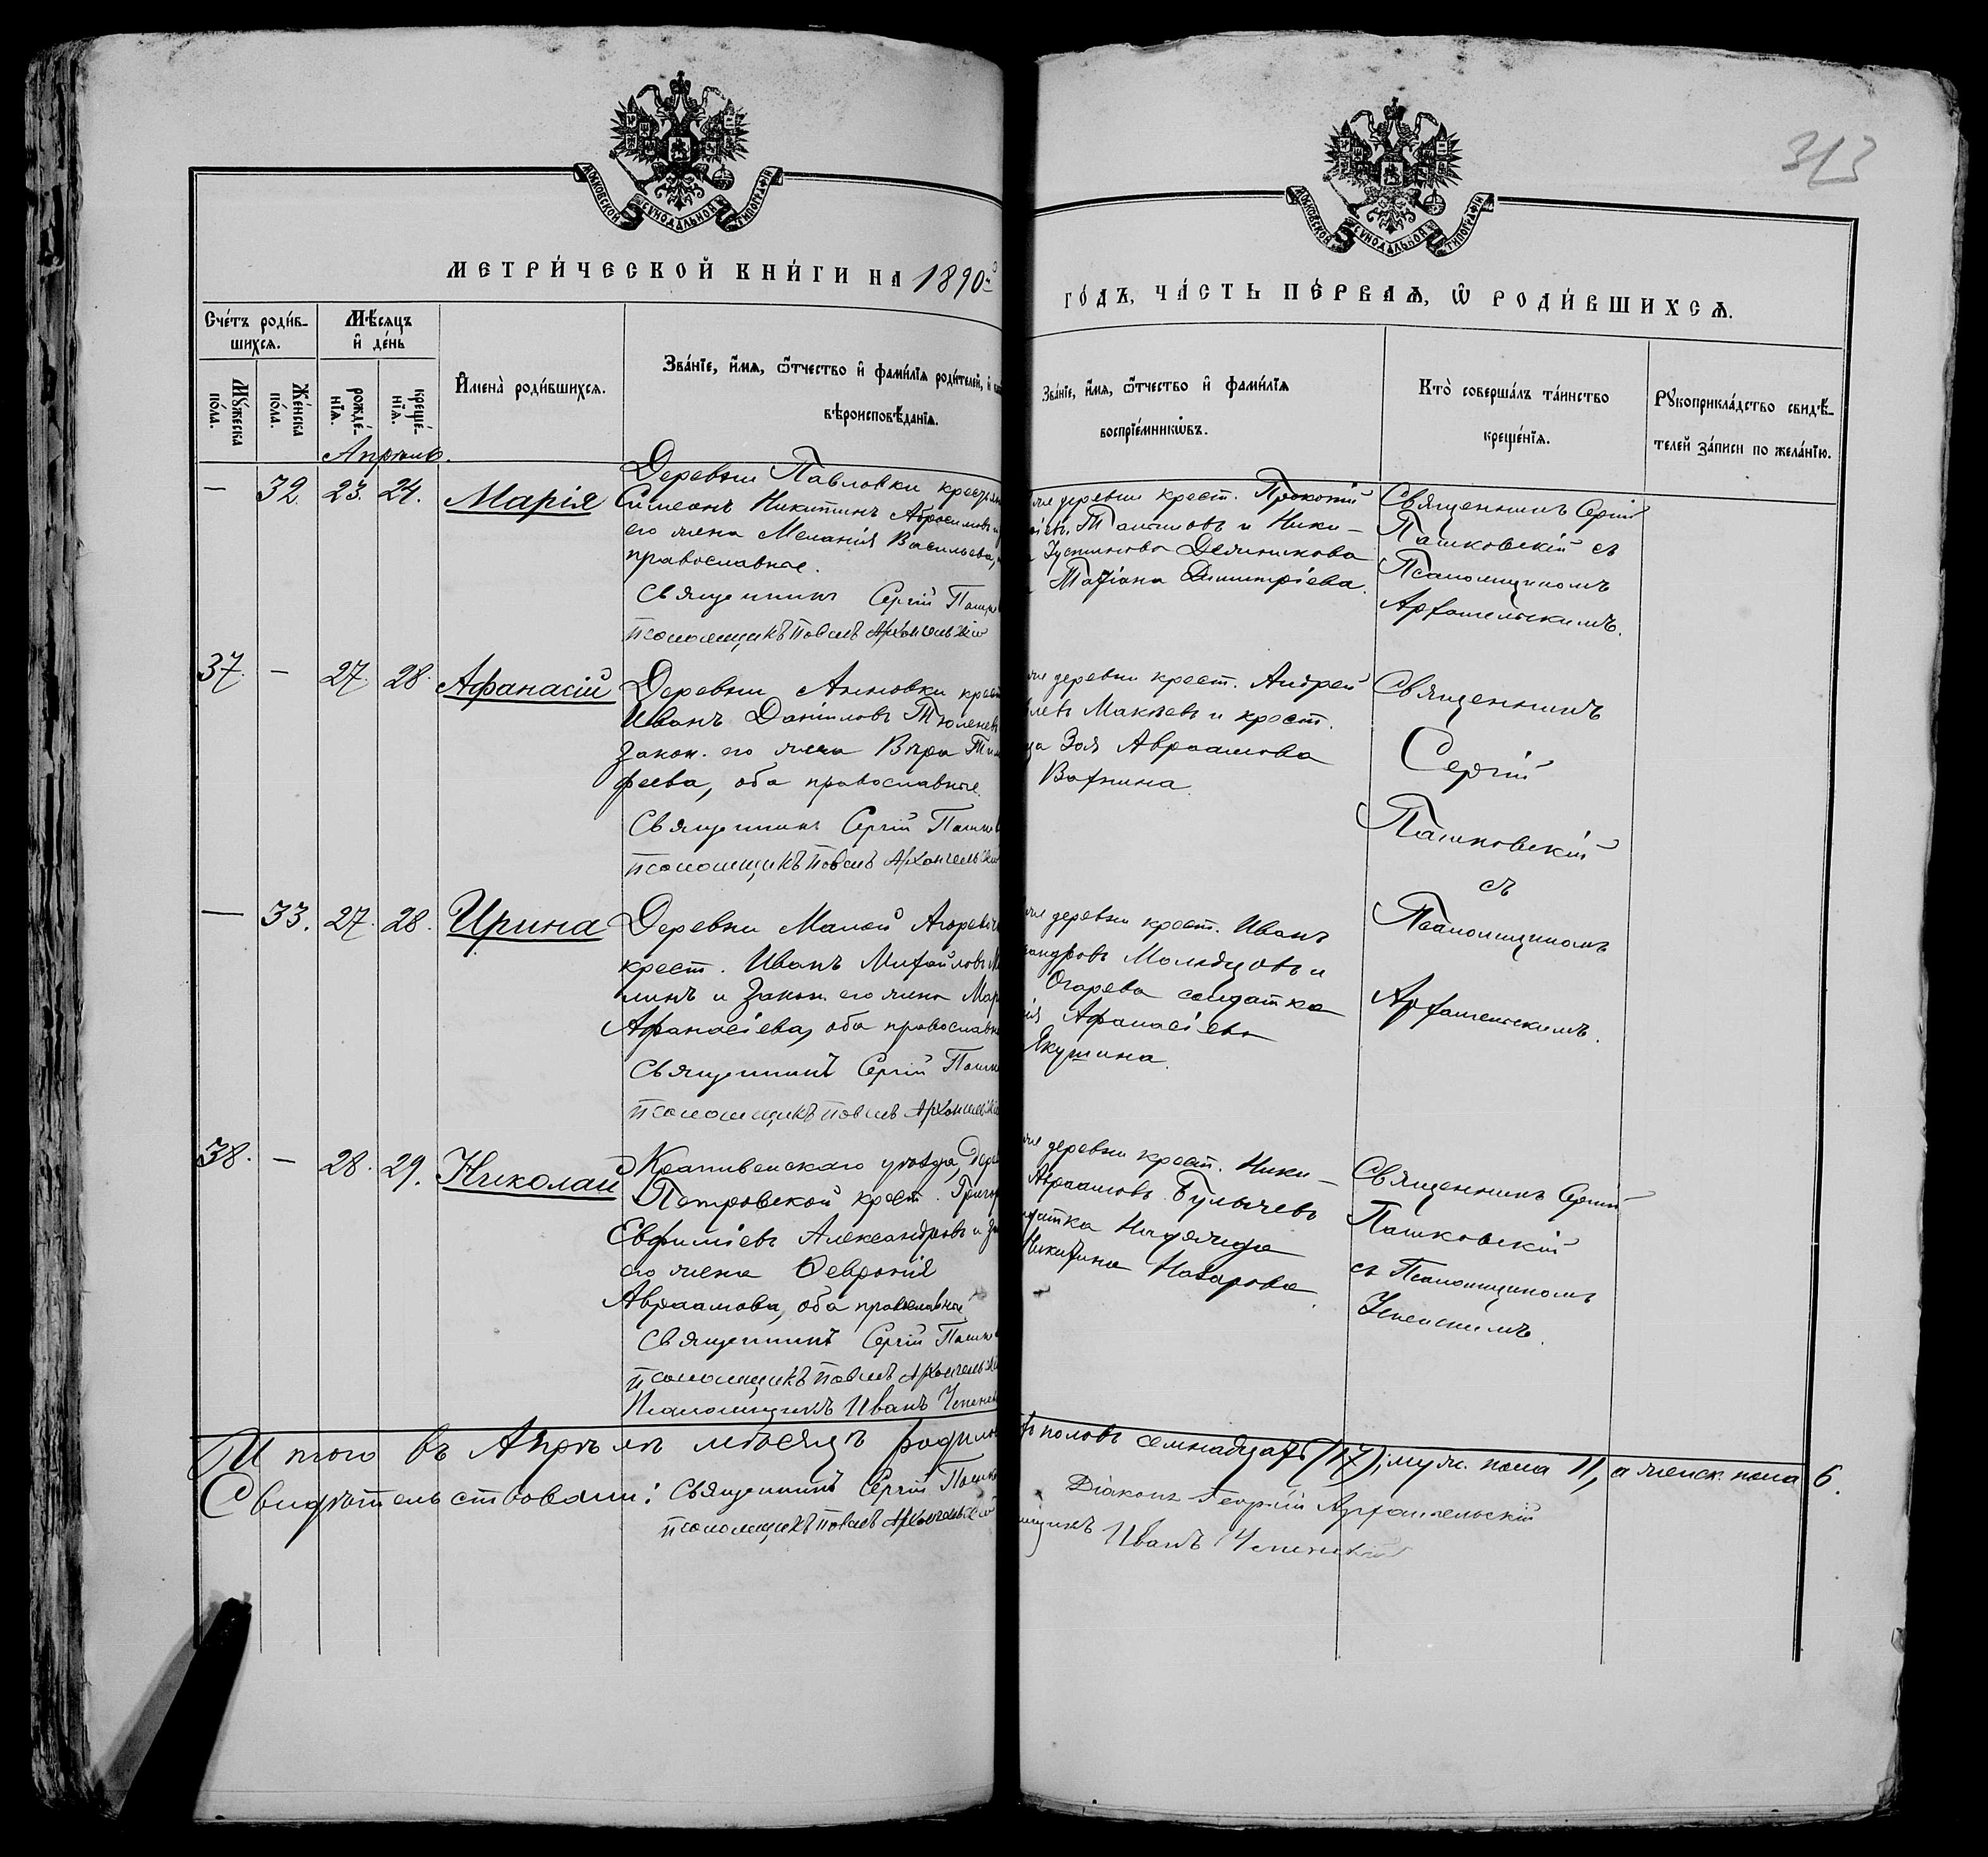 313
МОСКОВСКОЙ СѴНОДАЛЬНОЙ ТИПОГРАФІИ
МОСКОВСКОЙ СѴНОДАЛЬНОЙ ТИПОГРАФІИ
МЕТРИ́ЧЕСКОЙ КНИ́ГИ НА 1890й
ГО́ДЪ, ЧА́СТЬ ПЕ́РВАѦ, Ѡ РОДИ́ВШИХСѦ.
Сче́тъ роди́в-
шихсѧ.
Мꙋ́жеска
по́ла.
Же́нска
по́ла.
Мѣ́сѧцъ
и де́нь
рожде́-
нїѧ.
креще́-
нїѧ.
Имена̀ роди́вшихсѧ.
Зва́нїе, и́мѧ, ѻ́тчество и фами́лїѧ роди́телей, и
вѣроисповѣ́данїѧ.
Зва́нїе, и́мѧ, ѻ́тчество и фами́лїѧ
воспрїе́мникѡвъ.
Кто̀ соверша́лъ та́инство
креще́нїѧ.
Рꙋкоприкла́дство свидѣ́-
телей за́писи по жела́нїю.
Апрѣль.
— 32. 23. 24. Марія
Деревни Павловки крестьян
Симеонъ Никитинъ Абросимовъ и
его жена Меланія Васильева,
православные.
Священникъ Сергій Пашко
псаломщикъ Павелъ Архангельскій
же деревни крест. Прокопій
Тантиловъ и Ники-
Іустинова Деминикова
Татіана Димитріева.
Священникъ Сергій
Пашковскій съ
Псаломщикомъ
Архангельскимъ.
37. — 27. 28. Афанасій
Деревни Анновки крест
Иванъ Даніиловъ Тюленевъ
закон. его жена Вѣра Тим
феева, оба православные.
Священникъ Сергій Пашков
псаломщикъ Павелъ Архангельскій
же деревни крест. Андрей
Макѣевъ и крест.
Зоя Авраамова
Вахнина.
Священникъ
Сергій
Пашковскій
съ
Псаломщикомъ
Архангельскимъ.
— 33. 27. 28. Ирина
Деревни Малой Огорев
крест. Иванъ Михайловъ М
линъ и закон. его жена Мар
Афанасіева, оба православн
Священникъ Сергій Пашк
псаломщикъ Павелъ Архангельскій
же деревни крест. Иванъ
андровъ Молодцовъ и
Огарева солдатка
Афанасіева
Якушина.
38. — 28. 29. Николай
Крапивенскаго уѣзда, Дер
Петровской крест. Григор
Евфиміевъ Александровъ и за
его жена Февронія
Авраамова, оба православные
Священникъ Сергій Пашко
псаломщикъ Павелъ Архангельскій
Псаломщикъ Иванъ Успенск
же деревни крест. Ники-
Авраамовъ Булычевъ
датка Надежда
Никитина Назарова.
Священникъ Сергій
Пашковскій
съ Псаломщикомъ
Успенскимъ.
Итого въ Апрѣлѣ мѣсяцѣ родило
половъ семнадцать (17); муж. пола 11, а женск. пола 6.
Свидѣтельствовали: Священникъ Сергій Пашко
псаломщикъ Павелъ Архангельскій
Діаконъ Георгій Архангельскій
щикъ Иванъ Успенскій